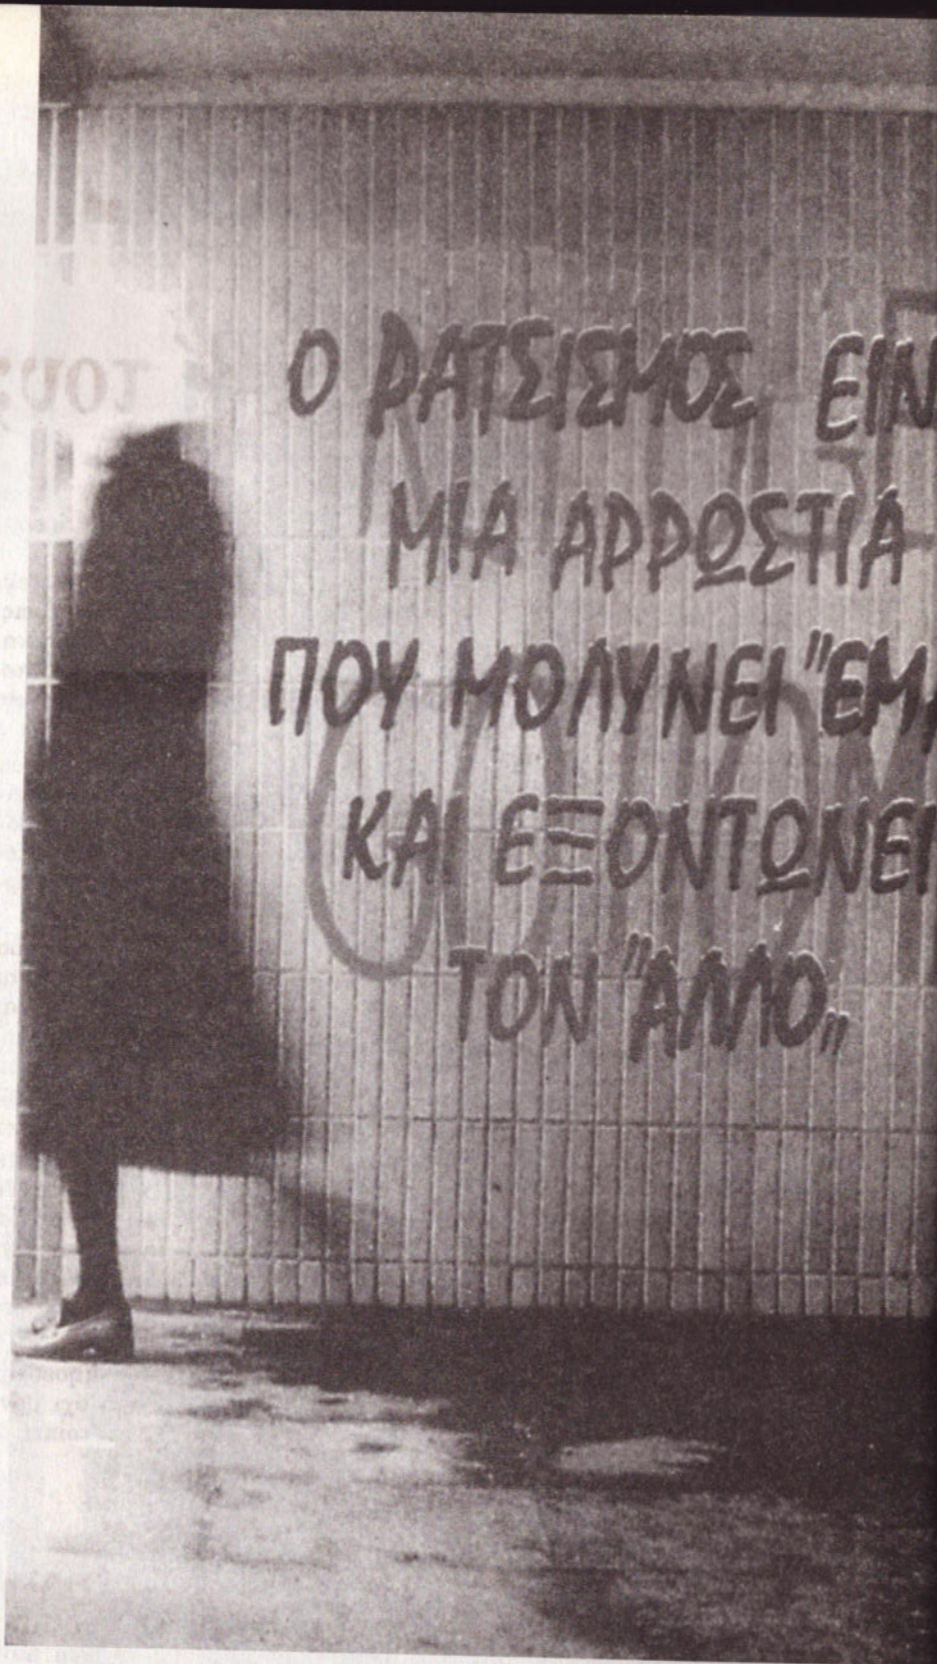 Ο ΡΑΤΣΙΣΜΟΣ ΕΙΝ
ΜΙΑ ΑΡΡΩΣΤΙΑ
ΠΟΥ ΜΟΛΥΝΕΙ "ΕΜ
ΚΑΙ ΕΞΟΝΤΩΝΕΙ
ΤΟΝ "ΑΛΛΟ„